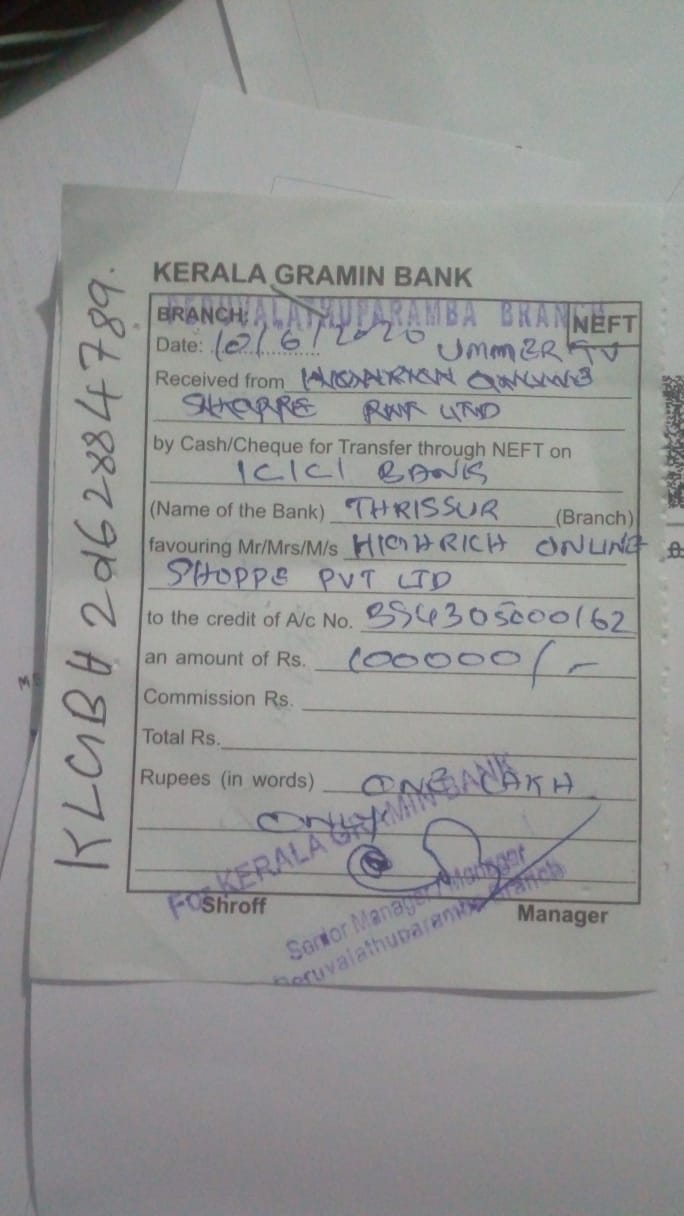 KERALA GRAMIN BANK
BRANCH: PERUVALATHUPARAMBA BRANCH
NEFT
Date: 10/6/2020 UMMER TV
Received from HIGHRICH ONLINE
SHOPPE PVT LTD
by Cash/Cheque for Transfer through NEFT on
ICICI BANK
(Name of the Bank) THRISSUR (Branch)
favouring Mr/Mrs/M/s HIGHRICH ONLINE
SHOPPE PVT LTD
to the credit of A/c No. 354305000162
an amount of Rs. 100000/-
Commission Rs.
Total Rs.
Rupees (in words) ONE LAKH
ONLY
For KERALA GRAMIN BANK
Shroff
Manager
Senior Manager / Manager
Peruvalathuparamba Branch
KLGBH2062884789.